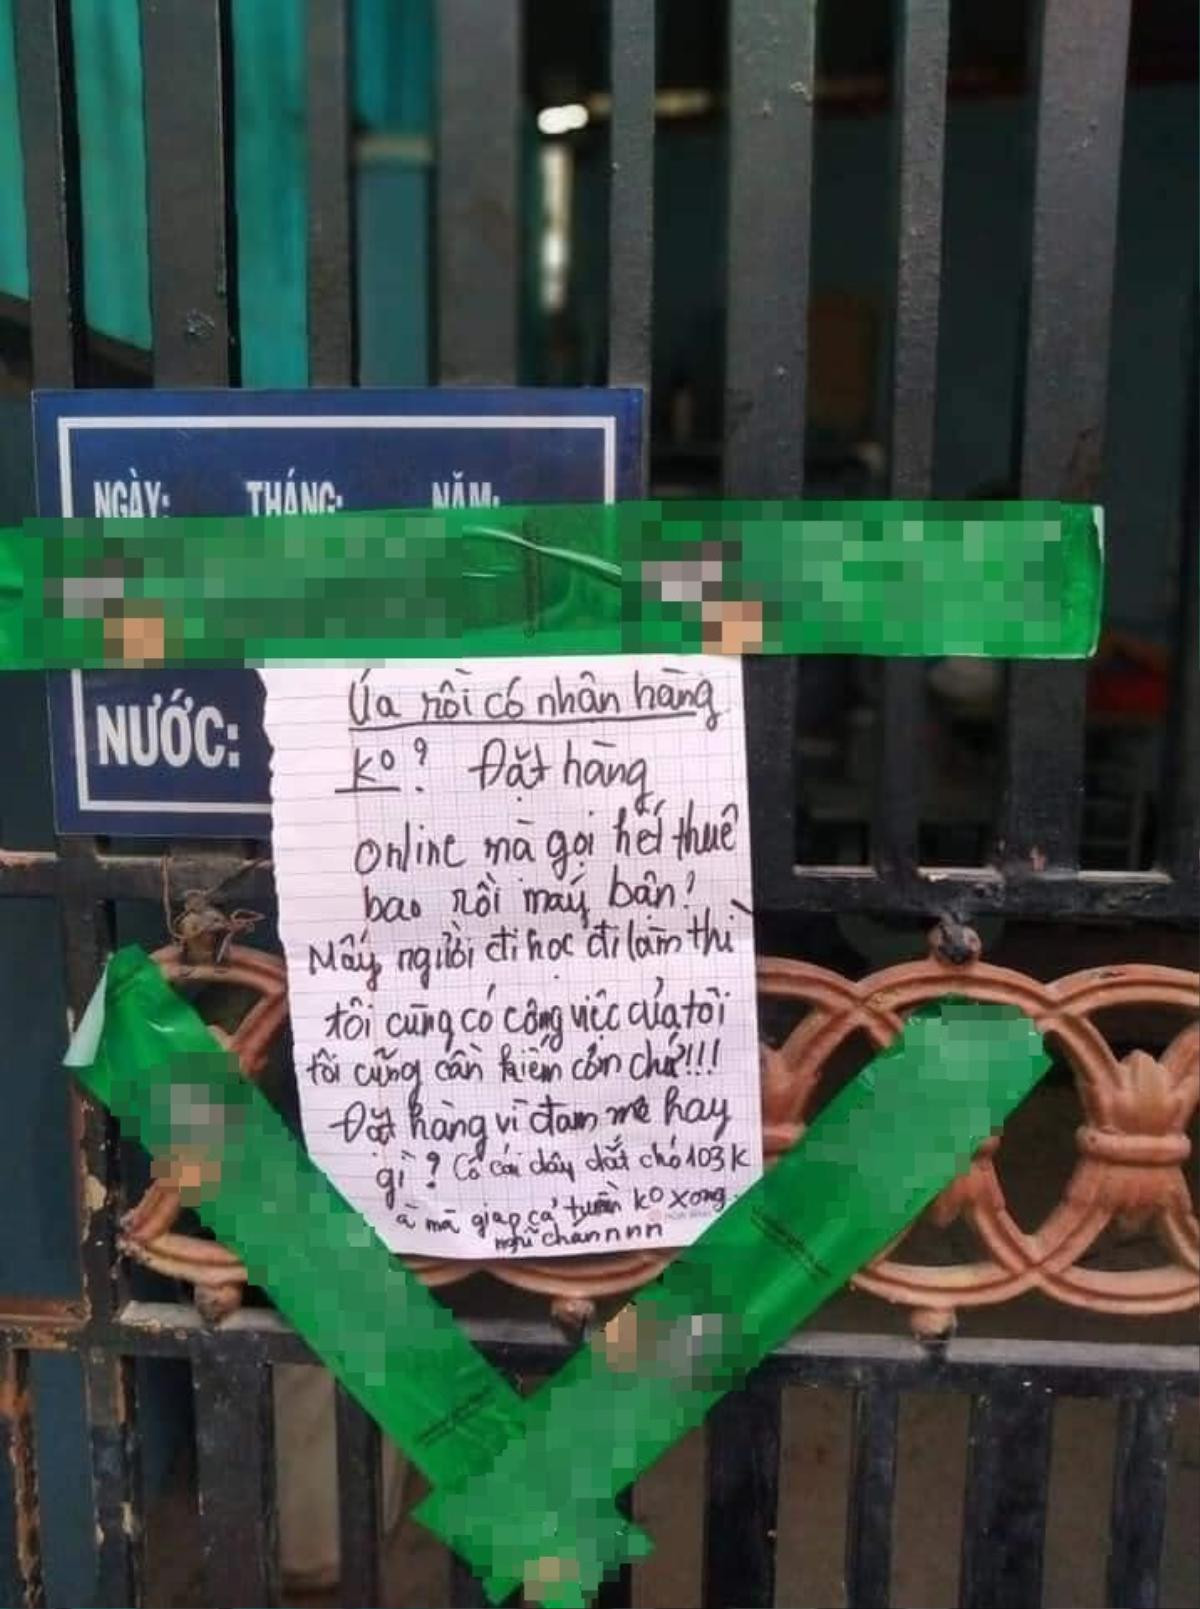 NGÀY: THÁNG: NĂM:
NƯỚC:
Úa rồi có nhân hàng
ko? Đặt hàng
online mà gọi hết thuê
bao rồi máy bận?
Mấy người đi học đi làm thì
tôi cũng có công việc của tôi
tôi cũng cần kiếm cơm chứ?!!!
Đặt hàng vì đam mê hay
gì? Có cái dây dắt chó 103k
à mà giao cả tuần ko xong.
nghĩ channnn